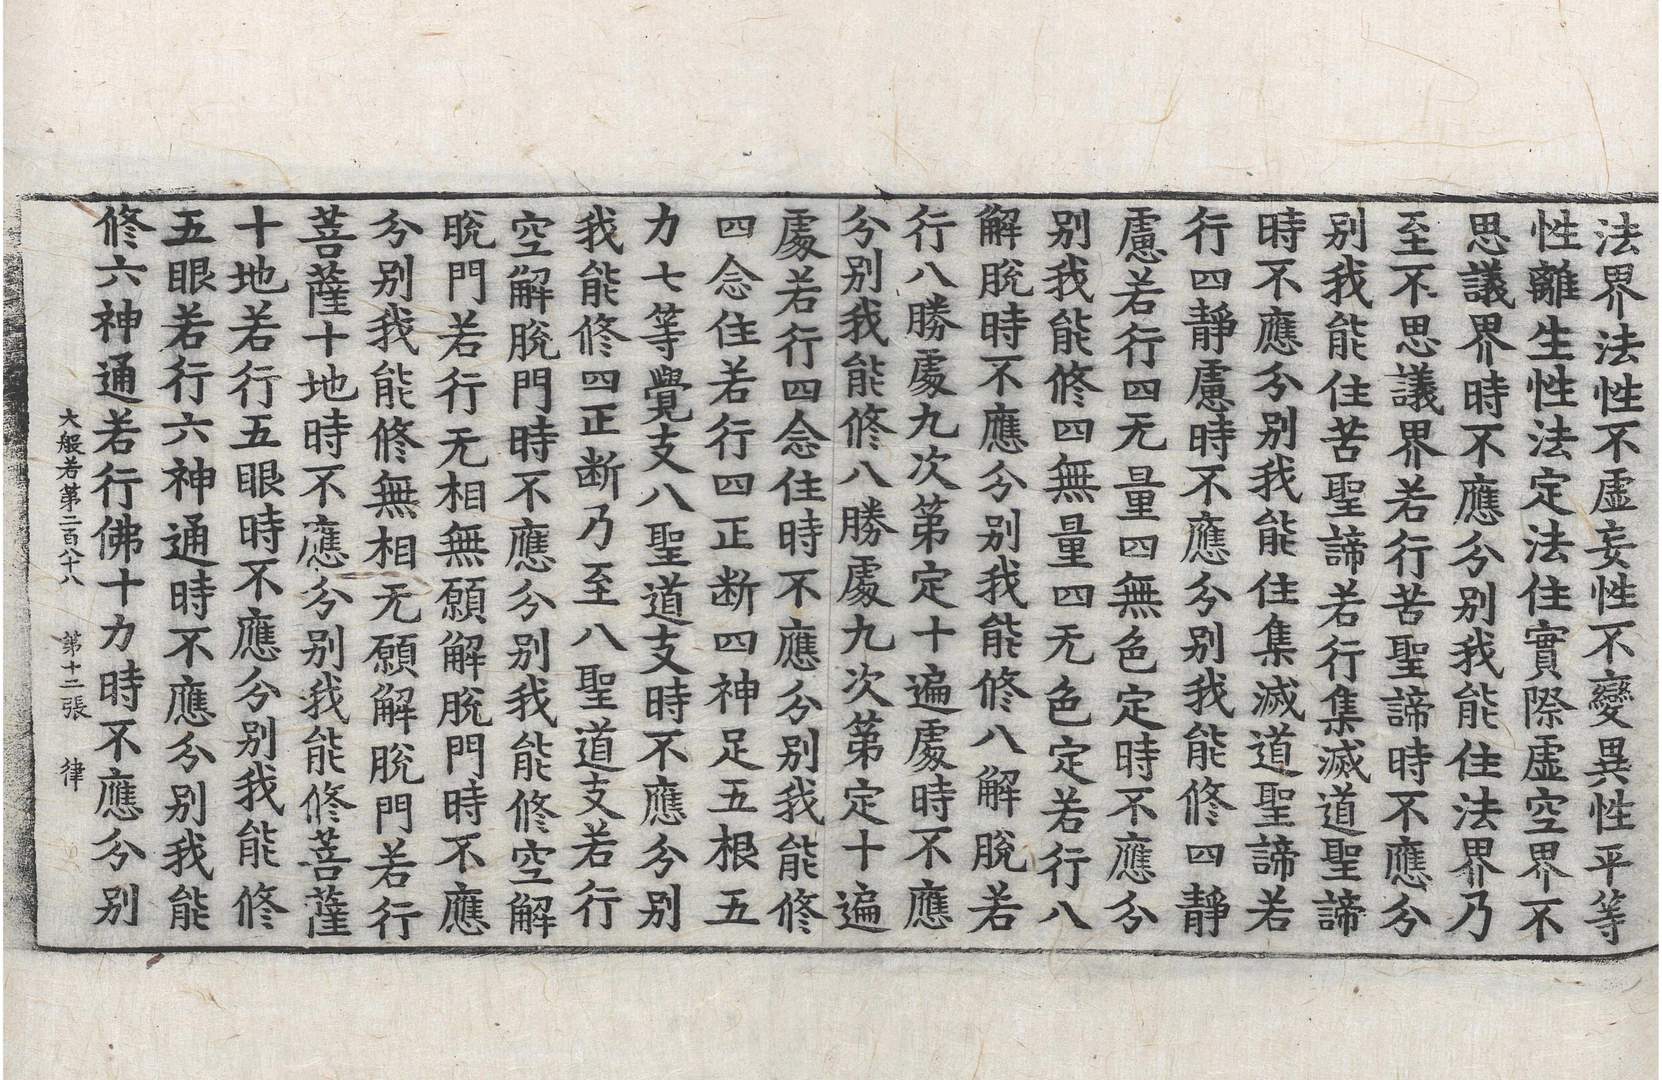 法界法性不虛妄性不變異性平等
性離生性法定法住實際虛空界不
思議界時不應分別我能住法界乃
至不思議界若行苦聖諦時不應分
別我能住苦聖諦若行集滅道聖諦
時不應分別我能住集滅道聖諦若
行四靜慮時不應分別我能修四靜
慮若行四无量四無色定時不應分
別我能修四無量四无色定若行八
解脫時不應分別我能修八解脫若
行八勝處九次第定十遍處時不應
分別我能修八勝處九次第定十遍
處若行四念住時不應分別我能修
四念住若行四正断四神足五根五
力七等覺支八聖道支時不應分別
我能修四正断乃至八聖道支若行
空解脫門時不應分別我能修空解
脫門若行无相無願解脫門時不應
分別我能修無相无願解脫門若行
菩薩十地時不應分別我能修菩薩
十地若行五眼時不應分別我能修
五眼若行六神通時不應分別我能
修六神通若行佛十力時不應分別
大般若第二百八十八 第十二張 律